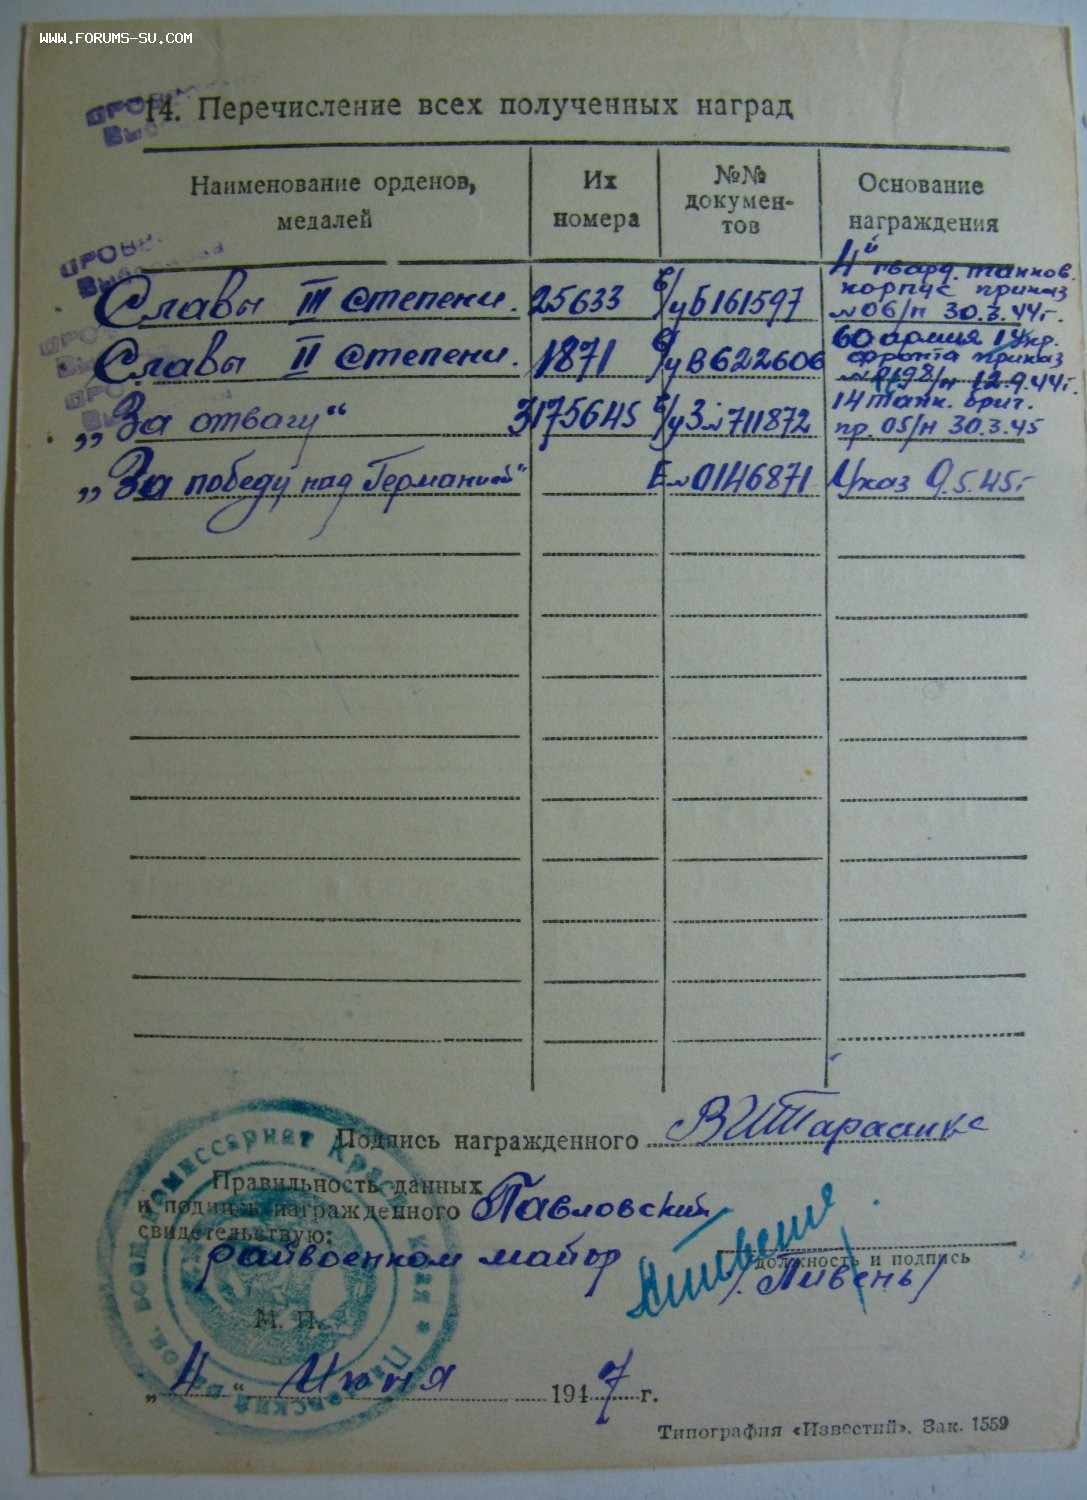 www.forums-su.com
14. Перечисление всех полученных наград
Наименование орденов, медалей
Их номера
№№ докумен-тов
Основание награждения
Славы III степени. 25633 б/у Б161597 4й гвард. танков. корпус приказ №06/н 30.3.44г.
Славы II степени. 1871 о/у В622606 60 армия 1 Укр. фронта приказ 12.9.44г.
„За отвагу“ 3175645 б/у З №711872 14 танк. бриг. пр. 05/н 30.3.45
„За победу над Германией“ Е №0146871 Указ 9.5.45г
Подпись награжденного
Правильность данных
и подпись награжденного Павловский
свидетельствую:
райвоенком майор
должность и подпись
/Ливень/
М. П.
„4“ Июня 1947 г.
Типография «Известий». Зак. 1559